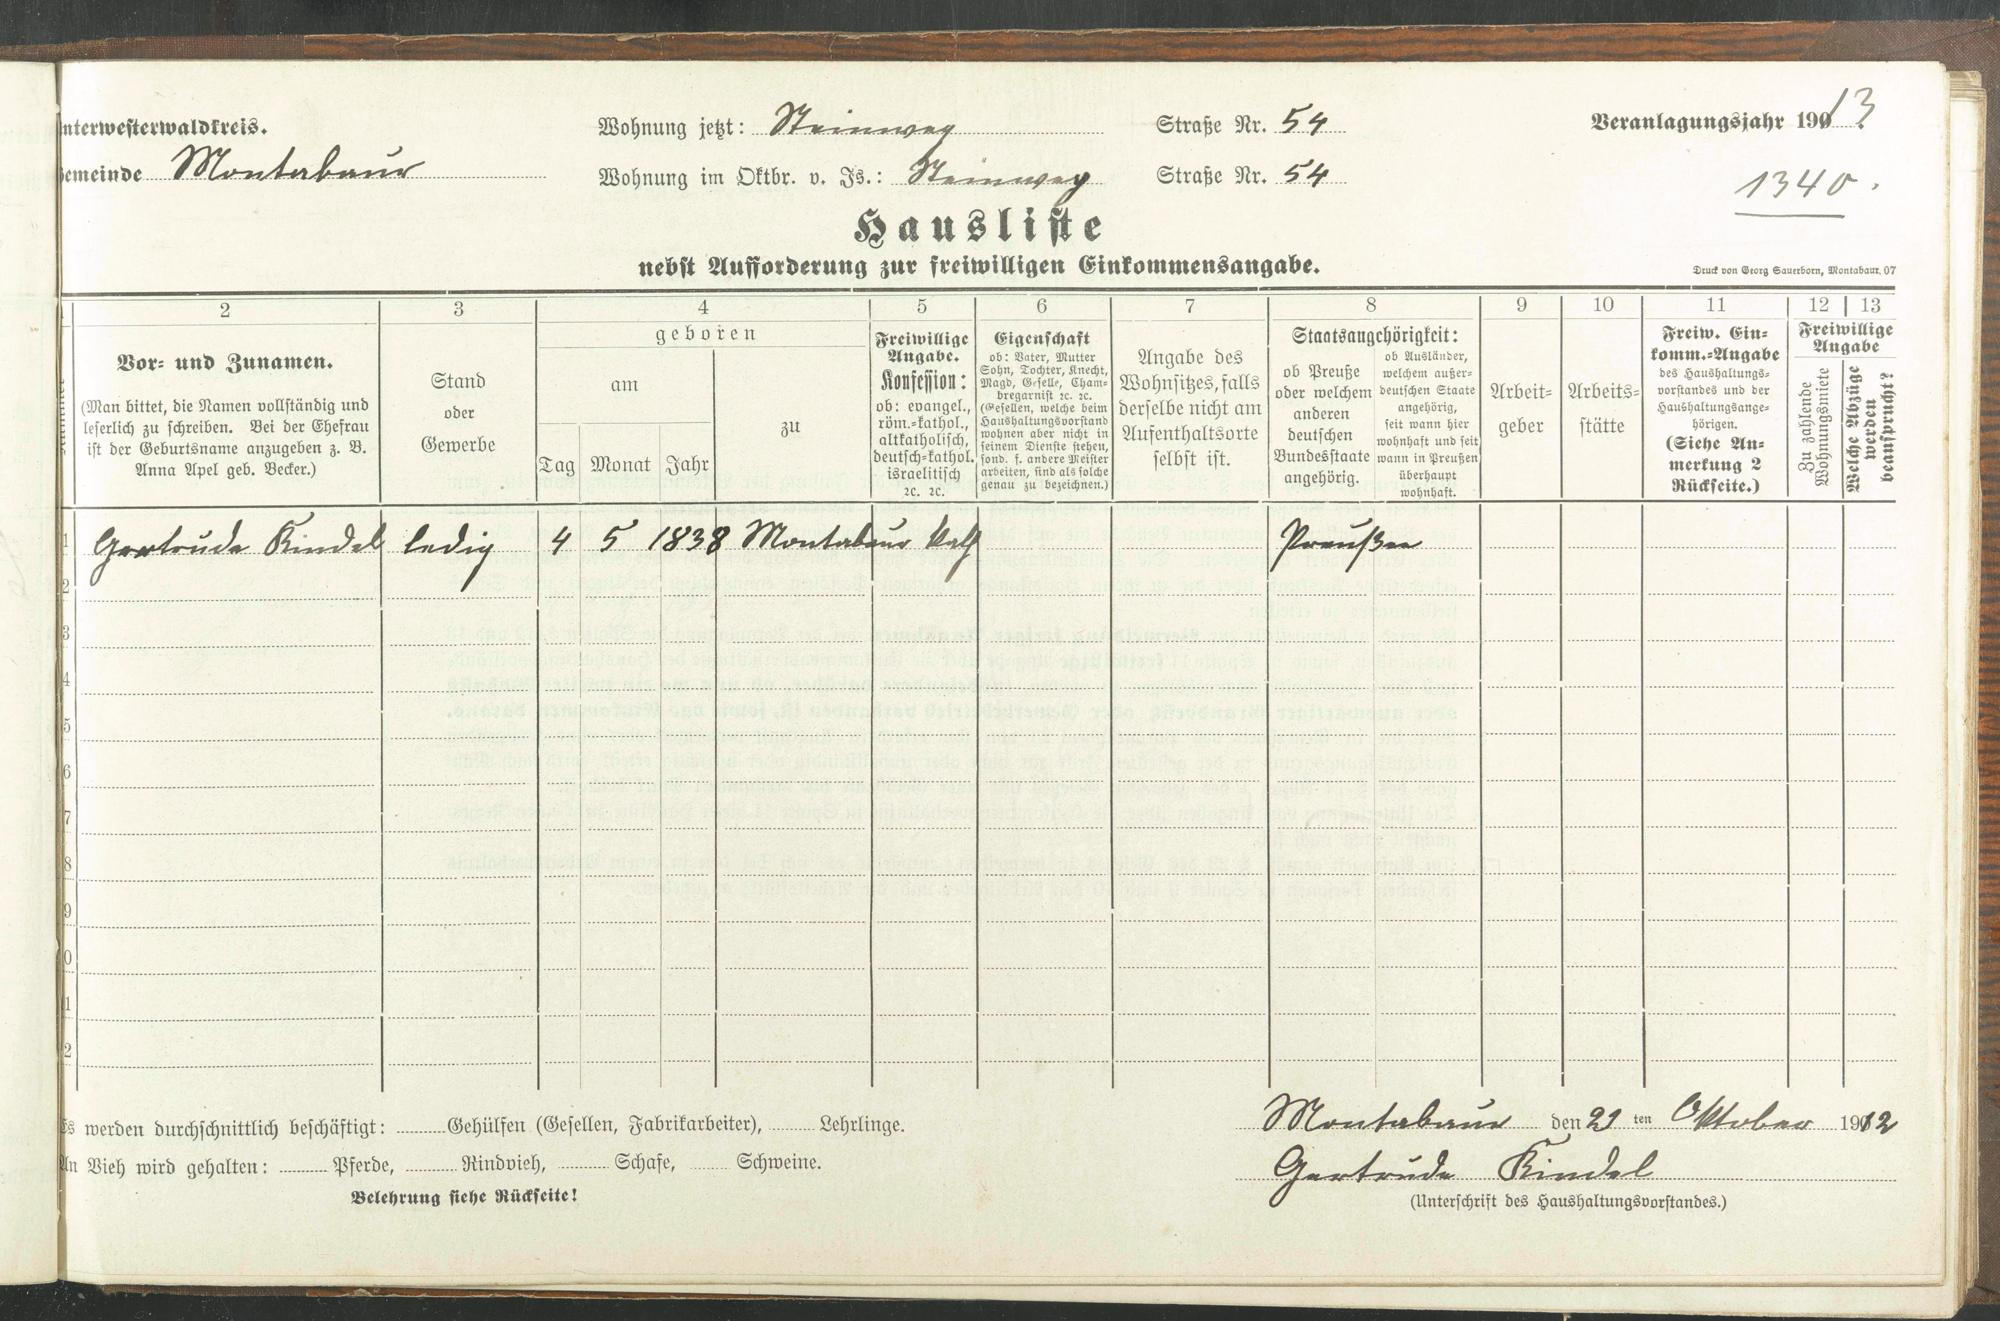 nterwesterwaldkreis.
Wohnung jetzt: Steinweg Straße Nr. 54
Veranlagungsjahr 1913
Gemeinde Montabaur
Wohnung im Oktbr. v. Js.: Steinweg Straße Nr. 54
1340.
Hausliste
nebst Aufforderung zur freiwilligen Einkommensangabe.
Druck von Georg Sauerborn, Montabaur. 07
2 3 4 5 6 7 8 9 10 11 12 13
Vor- und Zunamen.
(Man bittet, die Namen vollständig und
leserlich zu schreiben. Bei der Ehefrau
ist der Geburtsname anzugeben z. B.
Anna Apel geb. Becker.)
Stand
oder
Gewerbe
geboren
am
Tag Monat Jahr
zu
Freiwillige
Angabe.
Konfession:
ob: evangel.,
röm.-kathol.,
altkatholisch,
deutsch-kathol.
israelitisch
2c. 2c.
Eigenschaft
ob: Vater, Mutter
Sohn, Tochter, Knecht,
Magd, Geselle, Cham-
bregarnist 2c. 2c.
(Gesellen, welche beim
Haushaltungsvorstand
wohnen aber nicht in
seinem Dienste stehen,
sond. f. andere Meister
arbeiten, sind als solche
genau zu bezeichnen.)
Angabe des
Wohnsitzes, falls
derselbe nicht am
Aufenthaltsorte
selbst ist.
Staatsangehörigkeit:
ob Preuße
oder welchem
anderen
deutschen
Bundesstaate
angehörig.
ob Ausländer,
welchem außer-
deutschen Staate
angehörig,
seit wann hier
wohnhaft und seit
wann in Preußen
überhaupt
wohnhaft.
Arbeit-
geber
Arbeits-
stätte
Freiw. Ein-
komm.-Angabe
des Haushaltungs-
vorstandes und der
Haushaltungsange-
hörigen.
(Siehe An-
merkung 2
Rückseite.)
Freiwillige
Angabe
Zu zahlende
Wohnungsmiete
Welche Abzüge
werden
beansprucht?
1 Gertrude Kindel ledig 4 5 1838 Montabaur kath Preußen
2
3
4
5
6
7
8
9
0
1
2
Es werden durchschnittlich beschäftigt: Gehülfen (Gesellen, Fabrikarbeiter), Lehrlinge.
An Vieh wird gehalten: Pferde, Rindvieh, Schafe, Schweine.
Belehrung siehe Rückseite!
Montabaur den 21 ten Oktober 1912
Gertrude Kindel
(Unterschrift des Haushaltungsvorstandes.)